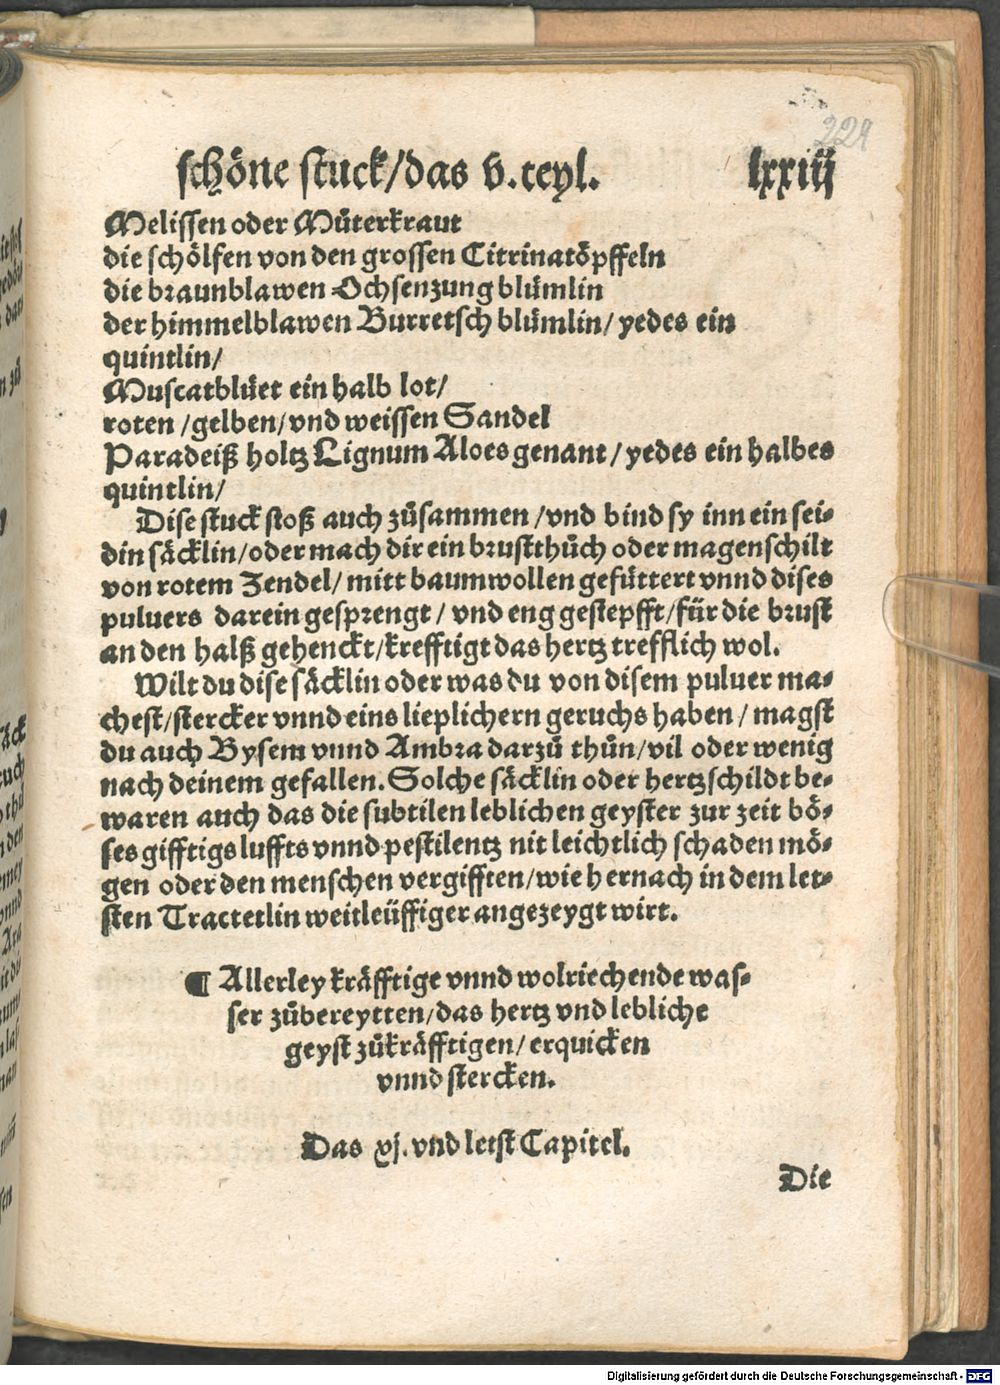 229
schöne stuck/das v.teyl. lxxiij
Melissen oder Můterkraut
die schölfen von den grossen Citrinatöpffeln
die braunblawen Ochsenzung blümlin
der himmelblawen Burretsch blümlin/ yedes ein
quintlin/
Muscatblüet ein halb lot/
roten /gelben/vnd weissen Sandel
Paradeiß holtz Lignum Aloes genant/ yedes ein halbes
quintlin/
Dise stuck stoß auch zůsammen /vnd bind sy inn ein sei-
din säcklin/oder mach dir ein brustthůch oder magenschilt
von rotem Zendel/ mitt baumwollen gefüttert vnnd dises
puluers darein gesprengt/ vnd eng gestepfft/für die brust
an den halß gehenckt/krefftigt das hertz trefflich wol.
Wilt du dise säcklin oder was du von disem puluer ma-
chest/stercker vnnd eins lieplichern geruchs haben/ magst
du auch Bysem vnnd Ambra darzů thůn/vil oder wenig
nach deinem gefallen. Solche säcklin oder hertzschildt be-
waren auch das die subtilen leblichen geyster zur zeit bö-
ses gifftigs luffts vnnd pestilentz nit leichtlich schaden mö-
gen oder den menschen vergifften/wie hernach in dem let-
sten Tractetlin weitleüffiger angezeygt wirt.
¶ Allerley kräfftige vnnd wolriechende was-
ser zůbereytten/das hertz vnd lebliche
geyst zůkräfftigen/ erquicken
vnnd stercken.
Das xj. vnd letst Capitel.
Die
Digitalisierung gefördert durch die Deutsche Forschungsgemeinschaft - DFG